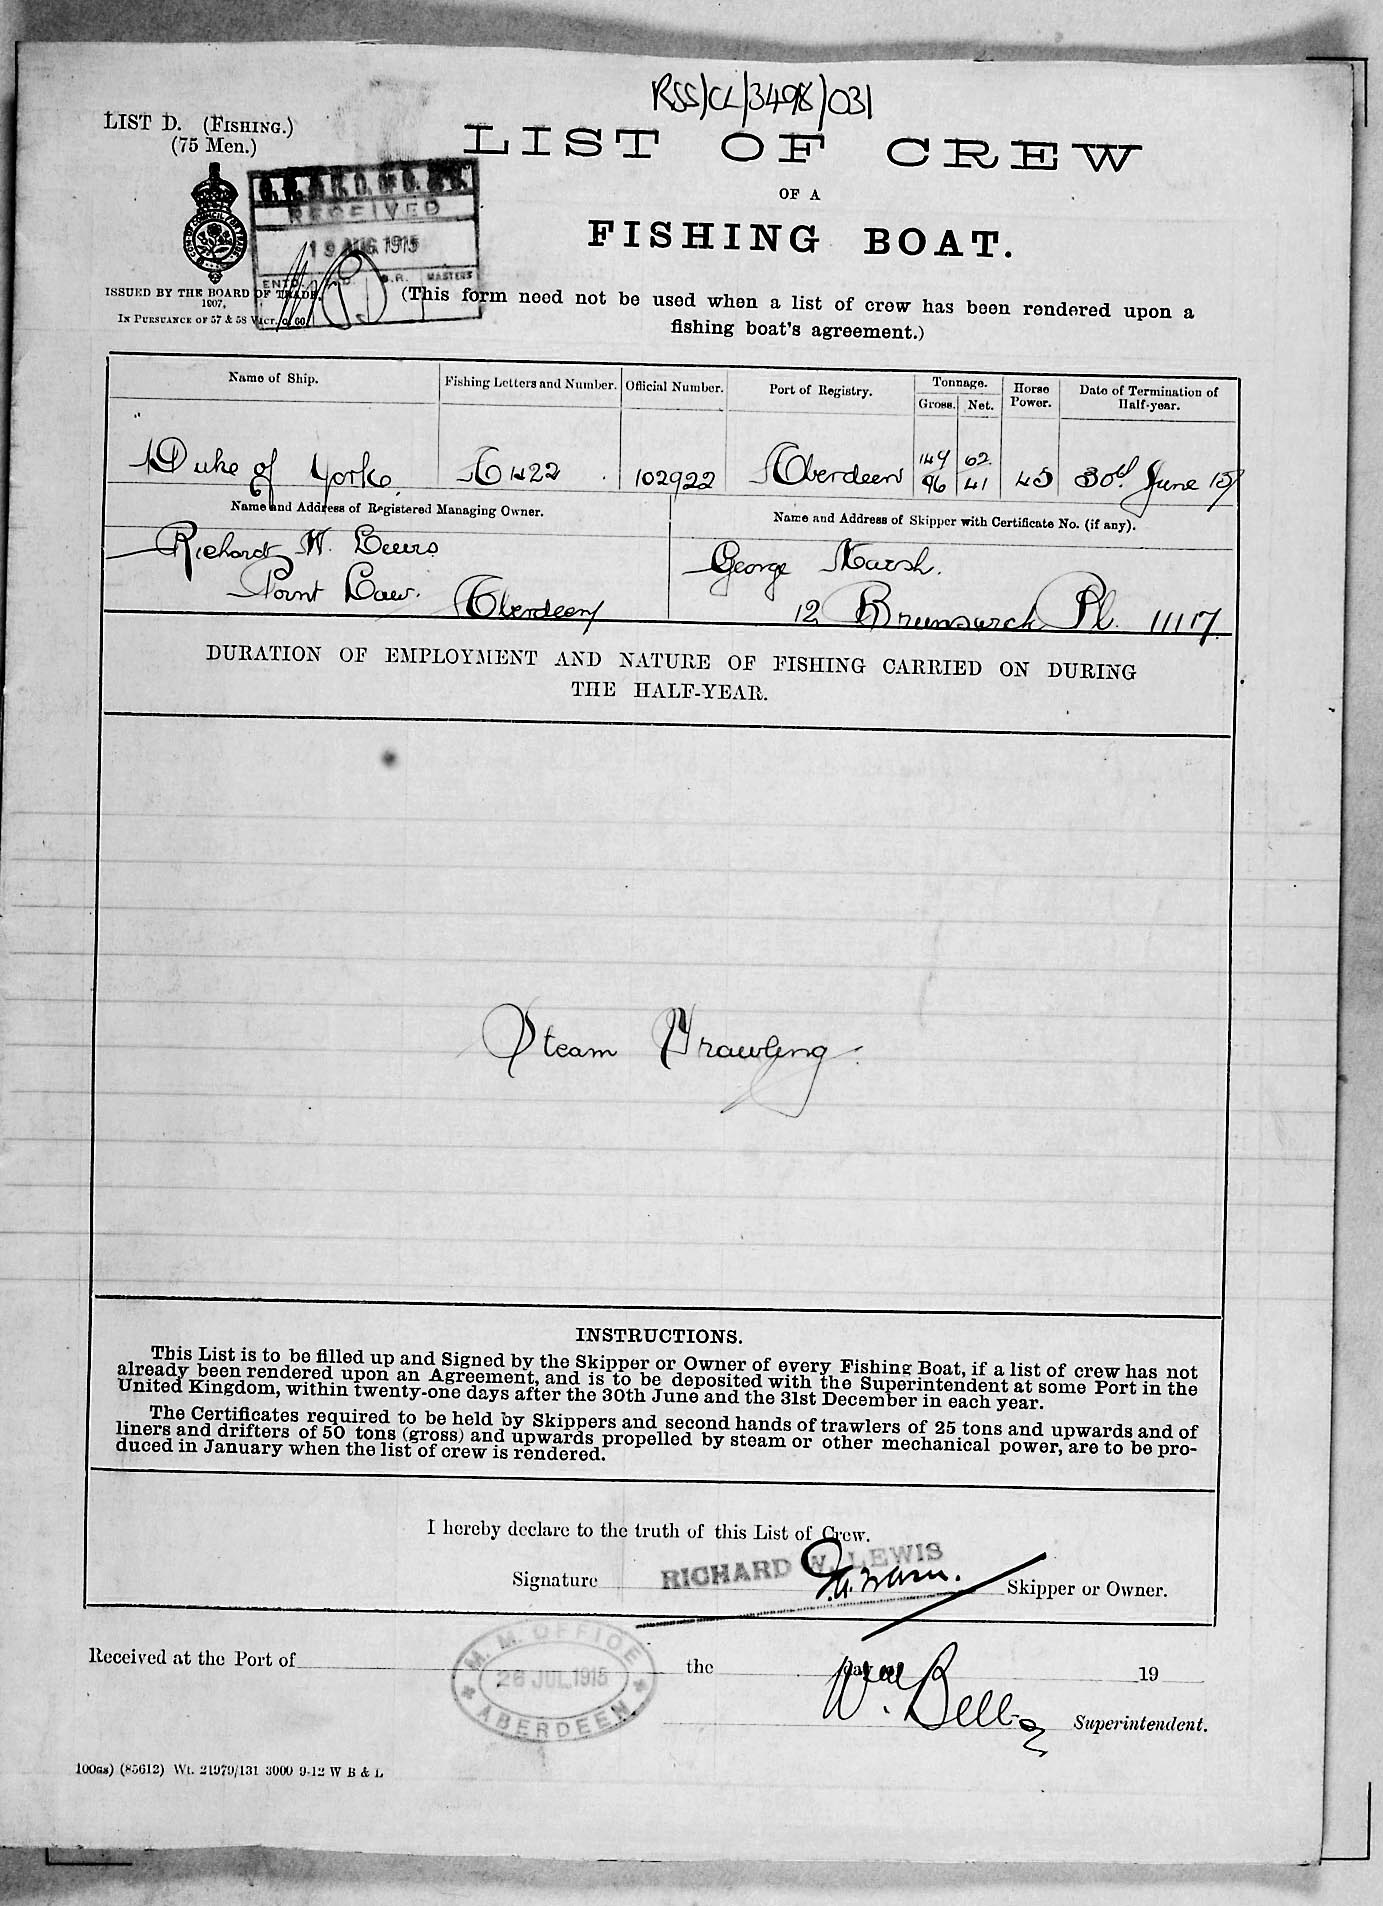 RSS/CL/3498/031
LIST D. (FISHING.)
(75 Men.)
LIST OF CREW
OF A
FISHING BOAT.
RECEIVED
19 AUG 1915
ENTD. B.R. MASTERS
ISSUED BY THE BOARD OF TRADE,
1907,
IN PURSUANCE OF 57 & 58 VICT. c. 60
(This form need not be used when a list of crew has been rendered upon a
fishing boat's agreement.)
Name of Ship. Fishing Letters and Number. Official Number. Port of Registry. Tonnage. Horse Power. Date of Termination of Half-year.
Gross. Net.
"Duke of York" A 422 102922 Aberdeen 149 62 45 30th June 15
96 41
Name and Address of Registered Managing Owner. Name and Address of Skipper with Certificate No. (if any).
Richard W. Lewis George Marsh.
Point Law. Aberdeen 12 Brunswick Pl. 11117
DURATION OF EMPLOYMENT AND NATURE OF FISHING CARRIED ON DURING
THE HALF-YEAR.
Steam Trawling.
INSTRUCTIONS.
This List is to be filled up and Signed by the Skipper or Owner of every Fishing Boat, if a list of crew has not
already been rendered upon an Agreement, and is to be deposited with the Superintendent at some Port in the
United Kingdom, within twenty-one days after the 30th June and the 31st December in each year.
The Certificates required to be held by Skippers and second hands of trawlers of 25 tons and upwards and of
liners and drifters of 50 tons (gross) and upwards propelled by steam or other mechanical power, are to be pro-
duced in January when the list of crew is rendered.
I hereby declare to the truth of this List of Crew.
Signature RICHARD W. LEWIS Skipper or Owner.
Received at the Port of the day of 19
M. M. OFFICE
26 JUL 1915
ABERDEEN
Wm Bell
Superintendent.
(85612) Wt. 21979/131 3000 9-12 W B & L